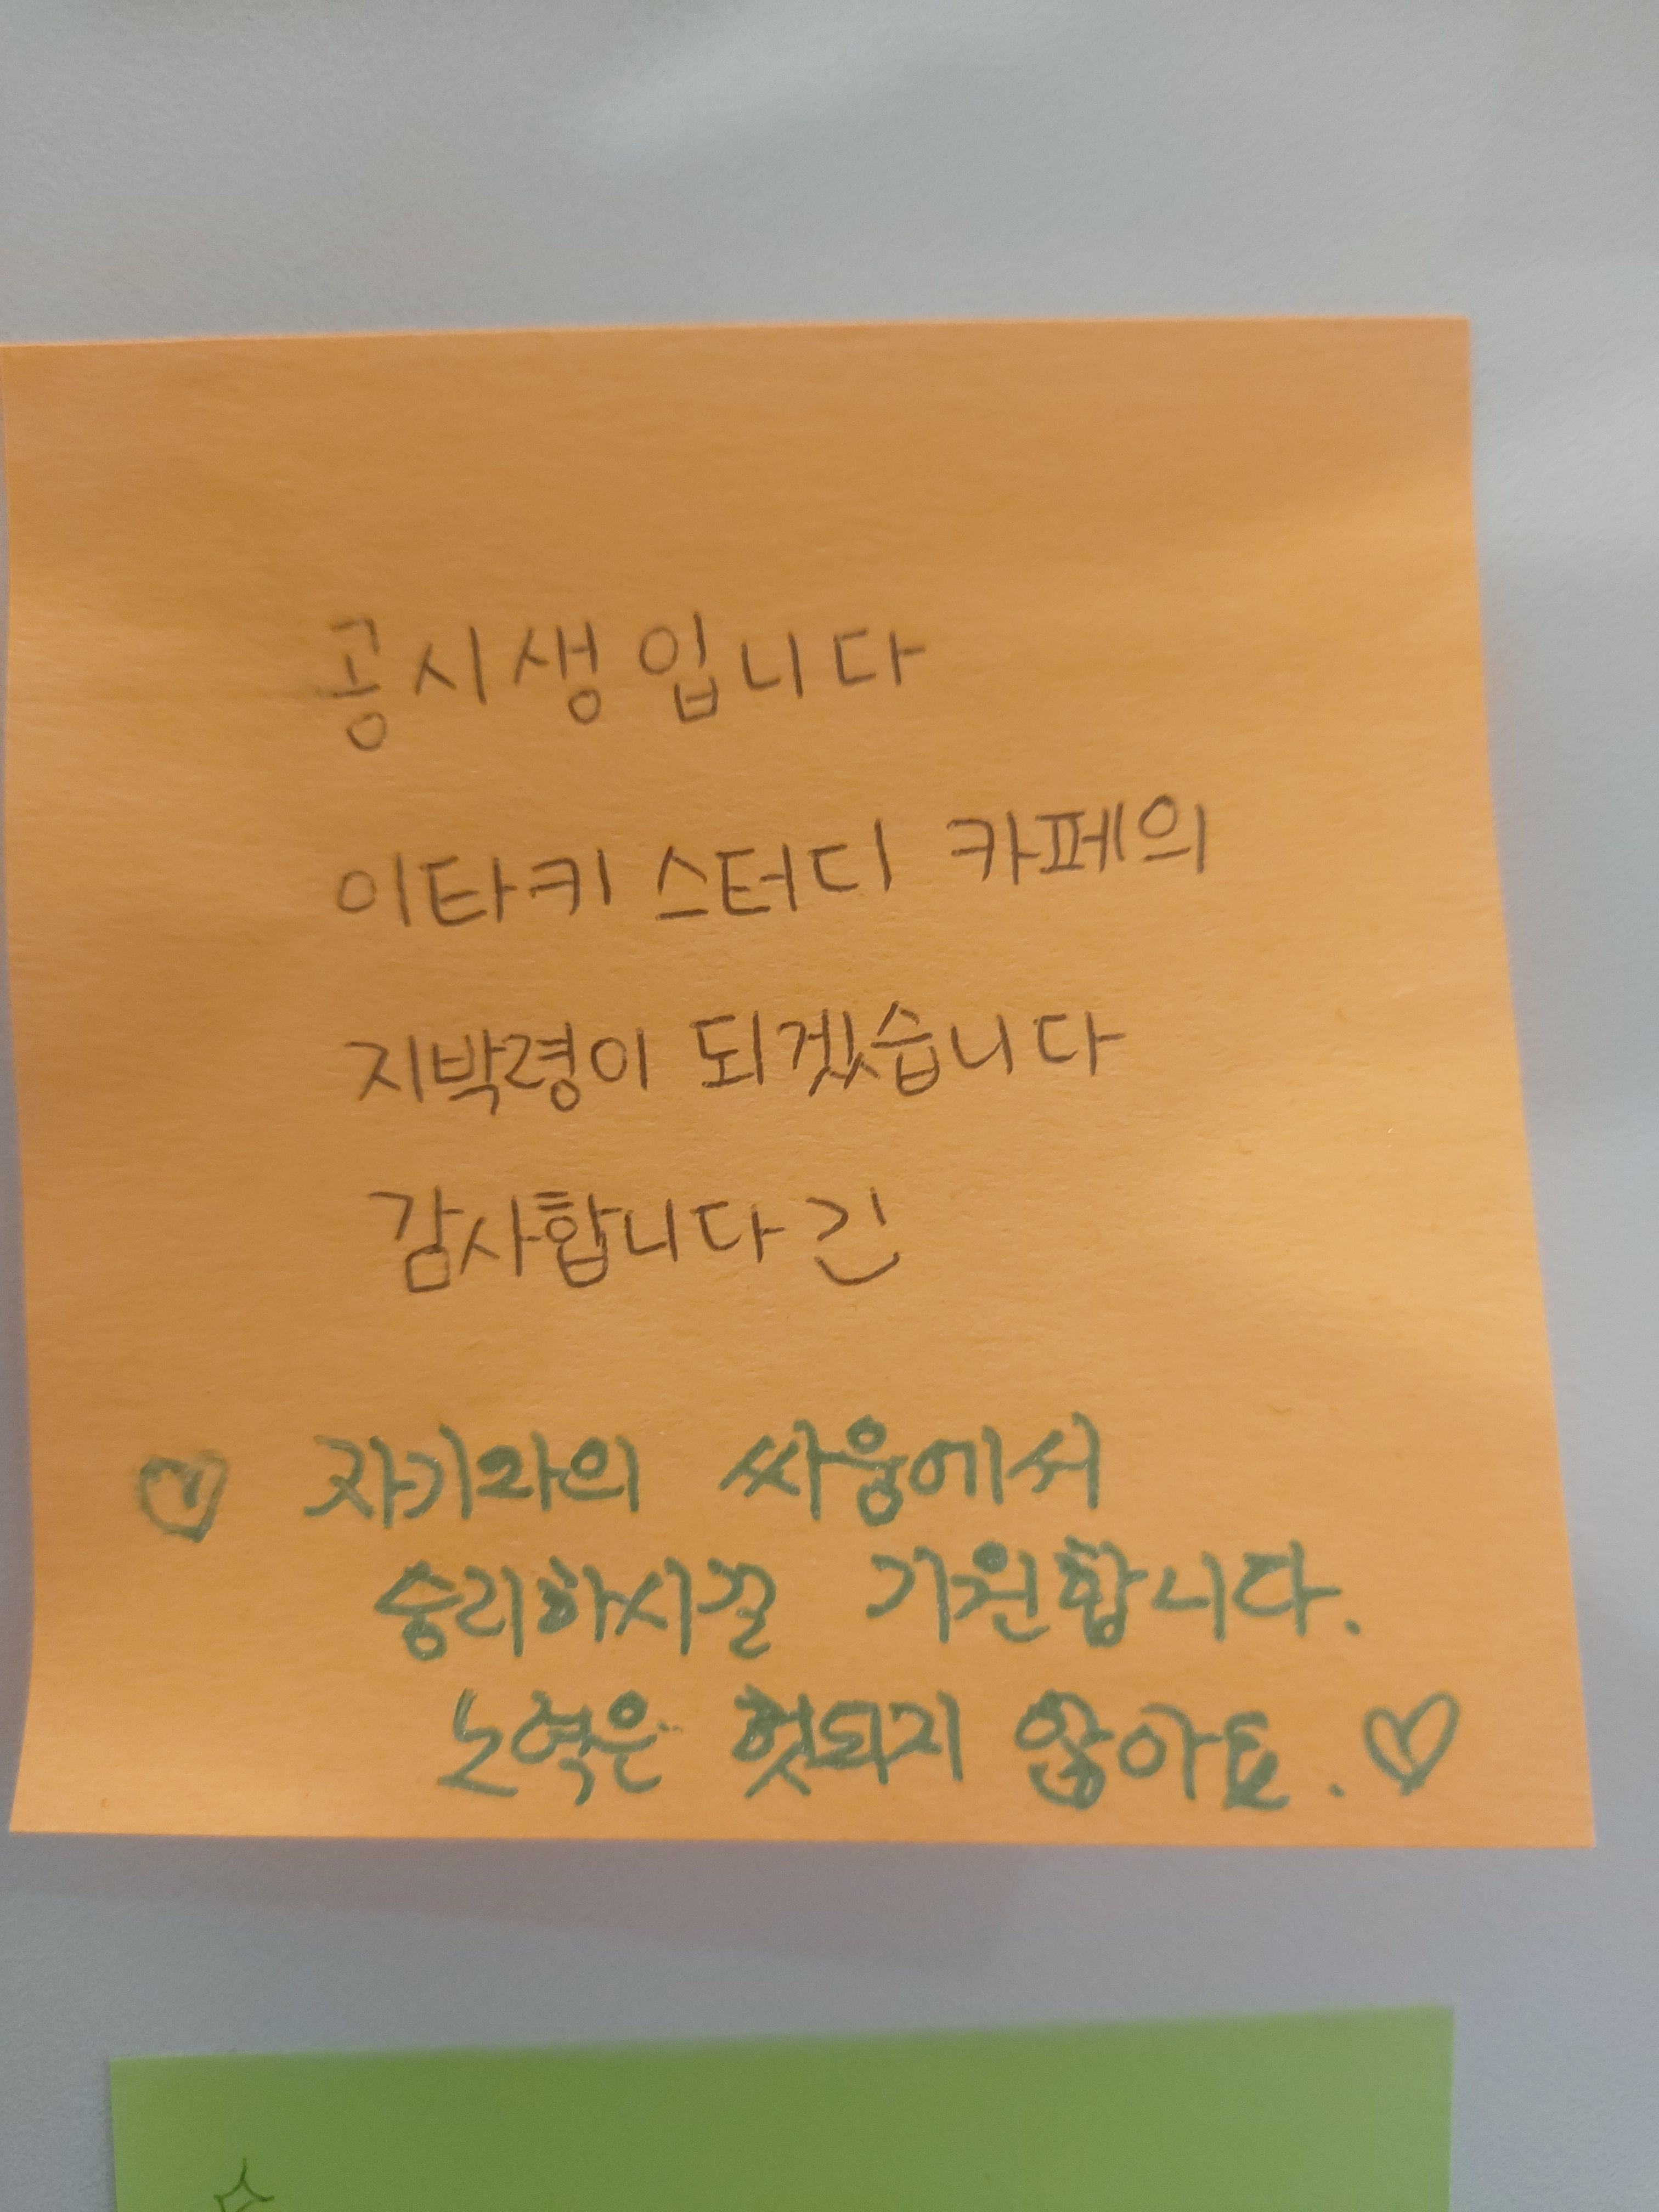 공시생입니다
이타키 스터디 카페의
지박령이 되겠습니다
감사합니다
♡ 자기와의 싸움에서
승리하시길 기원합니다.
노력은 헛되지 않아요. ♡